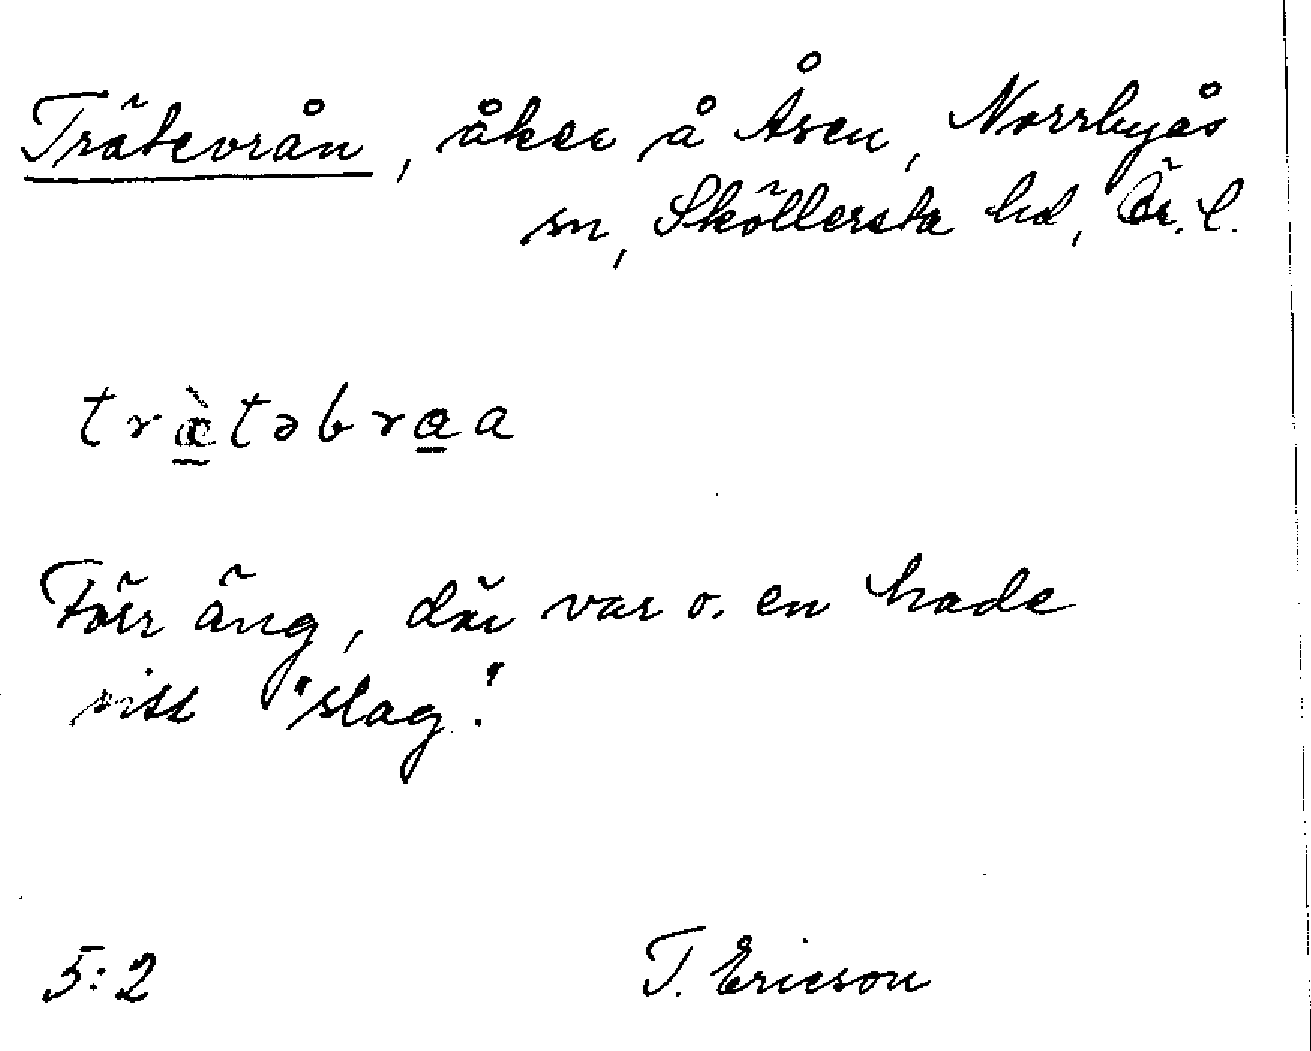 Trätevrån, åker å Åsen, Norrbyås
sn, Sköllersta hd, Ör. l.
træ̀təbraa
Förr äng, där var o. en hade
sitt "slag".
5:2 T. Ericson